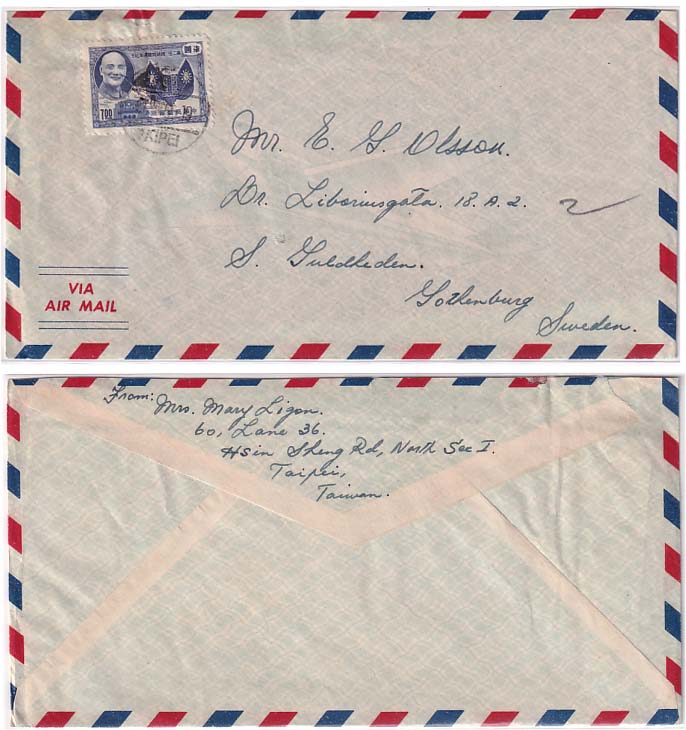 7.00
TAIPEI
Mr. E. G. Olsson.
Dr. Liboriusgata. 18. A. 2.
S. Guldheden.
Gothenburg
Sweden.
VIA
AIR MAIL
From: Mrs. Mary Ligon.
60, Lane 36.
Hsin Sheng Rd, North Sec I.
Taipei,
Taiwan.